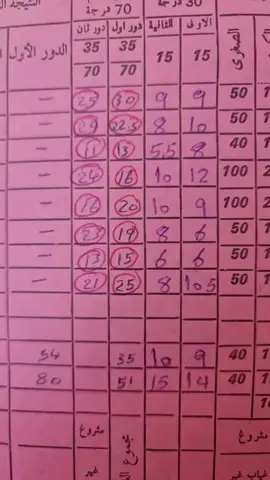 النتيجة
70 درجة
30 درجة
الصغرى
الاولى
الثانية
دور اول
دور ثان
الدور الأول
15 15 35 35
70 70
50 9 9 30 25 —
50 10 8 22.5 29 —
40 8 5.5 13 11 —
100 12 10 16 24 —
100 9 10 20 16 —
50 6 8 19 23 —
50 6 6 15 13 —
50 10.5 8 25 21 —
40 9 10 35 54
40 14 15 51 80
مشروع
غير
مجموع
مشروع
غياب غير